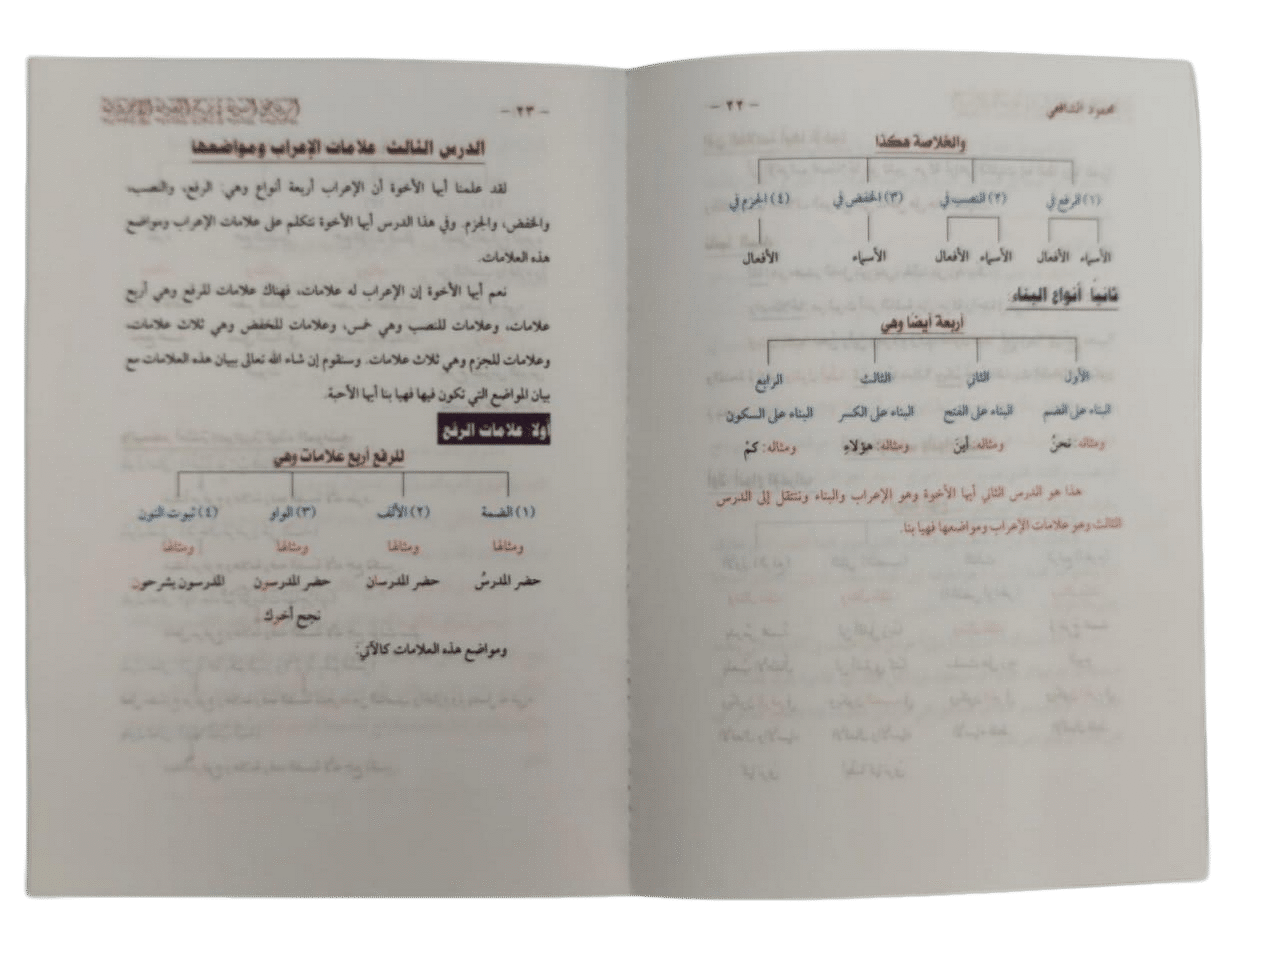 محمود الشافعي
- ٢٢ -
والخلاصة هكذا
(١) الرفع في (٢) النصب في (٣) الخفض في (٤) الجزم في
الأسماء الأفعال الأسماء الأفعال الأسماء الأفعال
ثانيًا أنواع البناء:
أربعة أيضًا وهي
الأول الثاني الثالث الرابع
البناء على الضم البناء على الفتح البناء على الكسر البناء على السكون
ومثاله: نحنُ ومثاله: أينَ ومثاله: هؤلاءِ ومثاله: كمْ
هذا هو الدرس الثاني أيها الأخوة وهو الإعراب والبناء وننتقل إلى الدرس
الثالث وهو علامات الإعراب ومواضعها فهيا بنا.
- ٢٣ -
الدرس الثالث: علامات الإعراب ومواضعها
لقد علمنا أيها الأخوة أن الإعراب أربعة أنواع وهي: الرفع، والنصب،
والخفض، والجزم. وفي هذا الدرس أيها الأخوة نتكلم على علامات الإعراب ومواضع
هذه العلامات.
نعم أيها الأخوة إن الإعراب له علامات، فهناك علامات للرفع وهي أربع
علامات، وعلامات للنصب وهي خمس، وعلامات للخفض وهي ثلاث علامات،
وعلامات للجزم وهي ثلاث علامات. وسنقوم إن شاء الله تعالى ببيان هذه العلامات مع
بيان المواضع التي تكون فيها فهيا بنا أيها الأحبة.
أولا علامات الرفع
للرفع أربع علامات وهي
(١) الضمة (٢) الألف (٣) الواو (٤) ثبوت النون
ومثالها ومثالها ومثالها ومثالها
حضر المدرسُ حضر المدرسان حضر المدرسون المدرسون يشرحون
نجح أخوك
ومواضع هذه العلامات كالآتي: